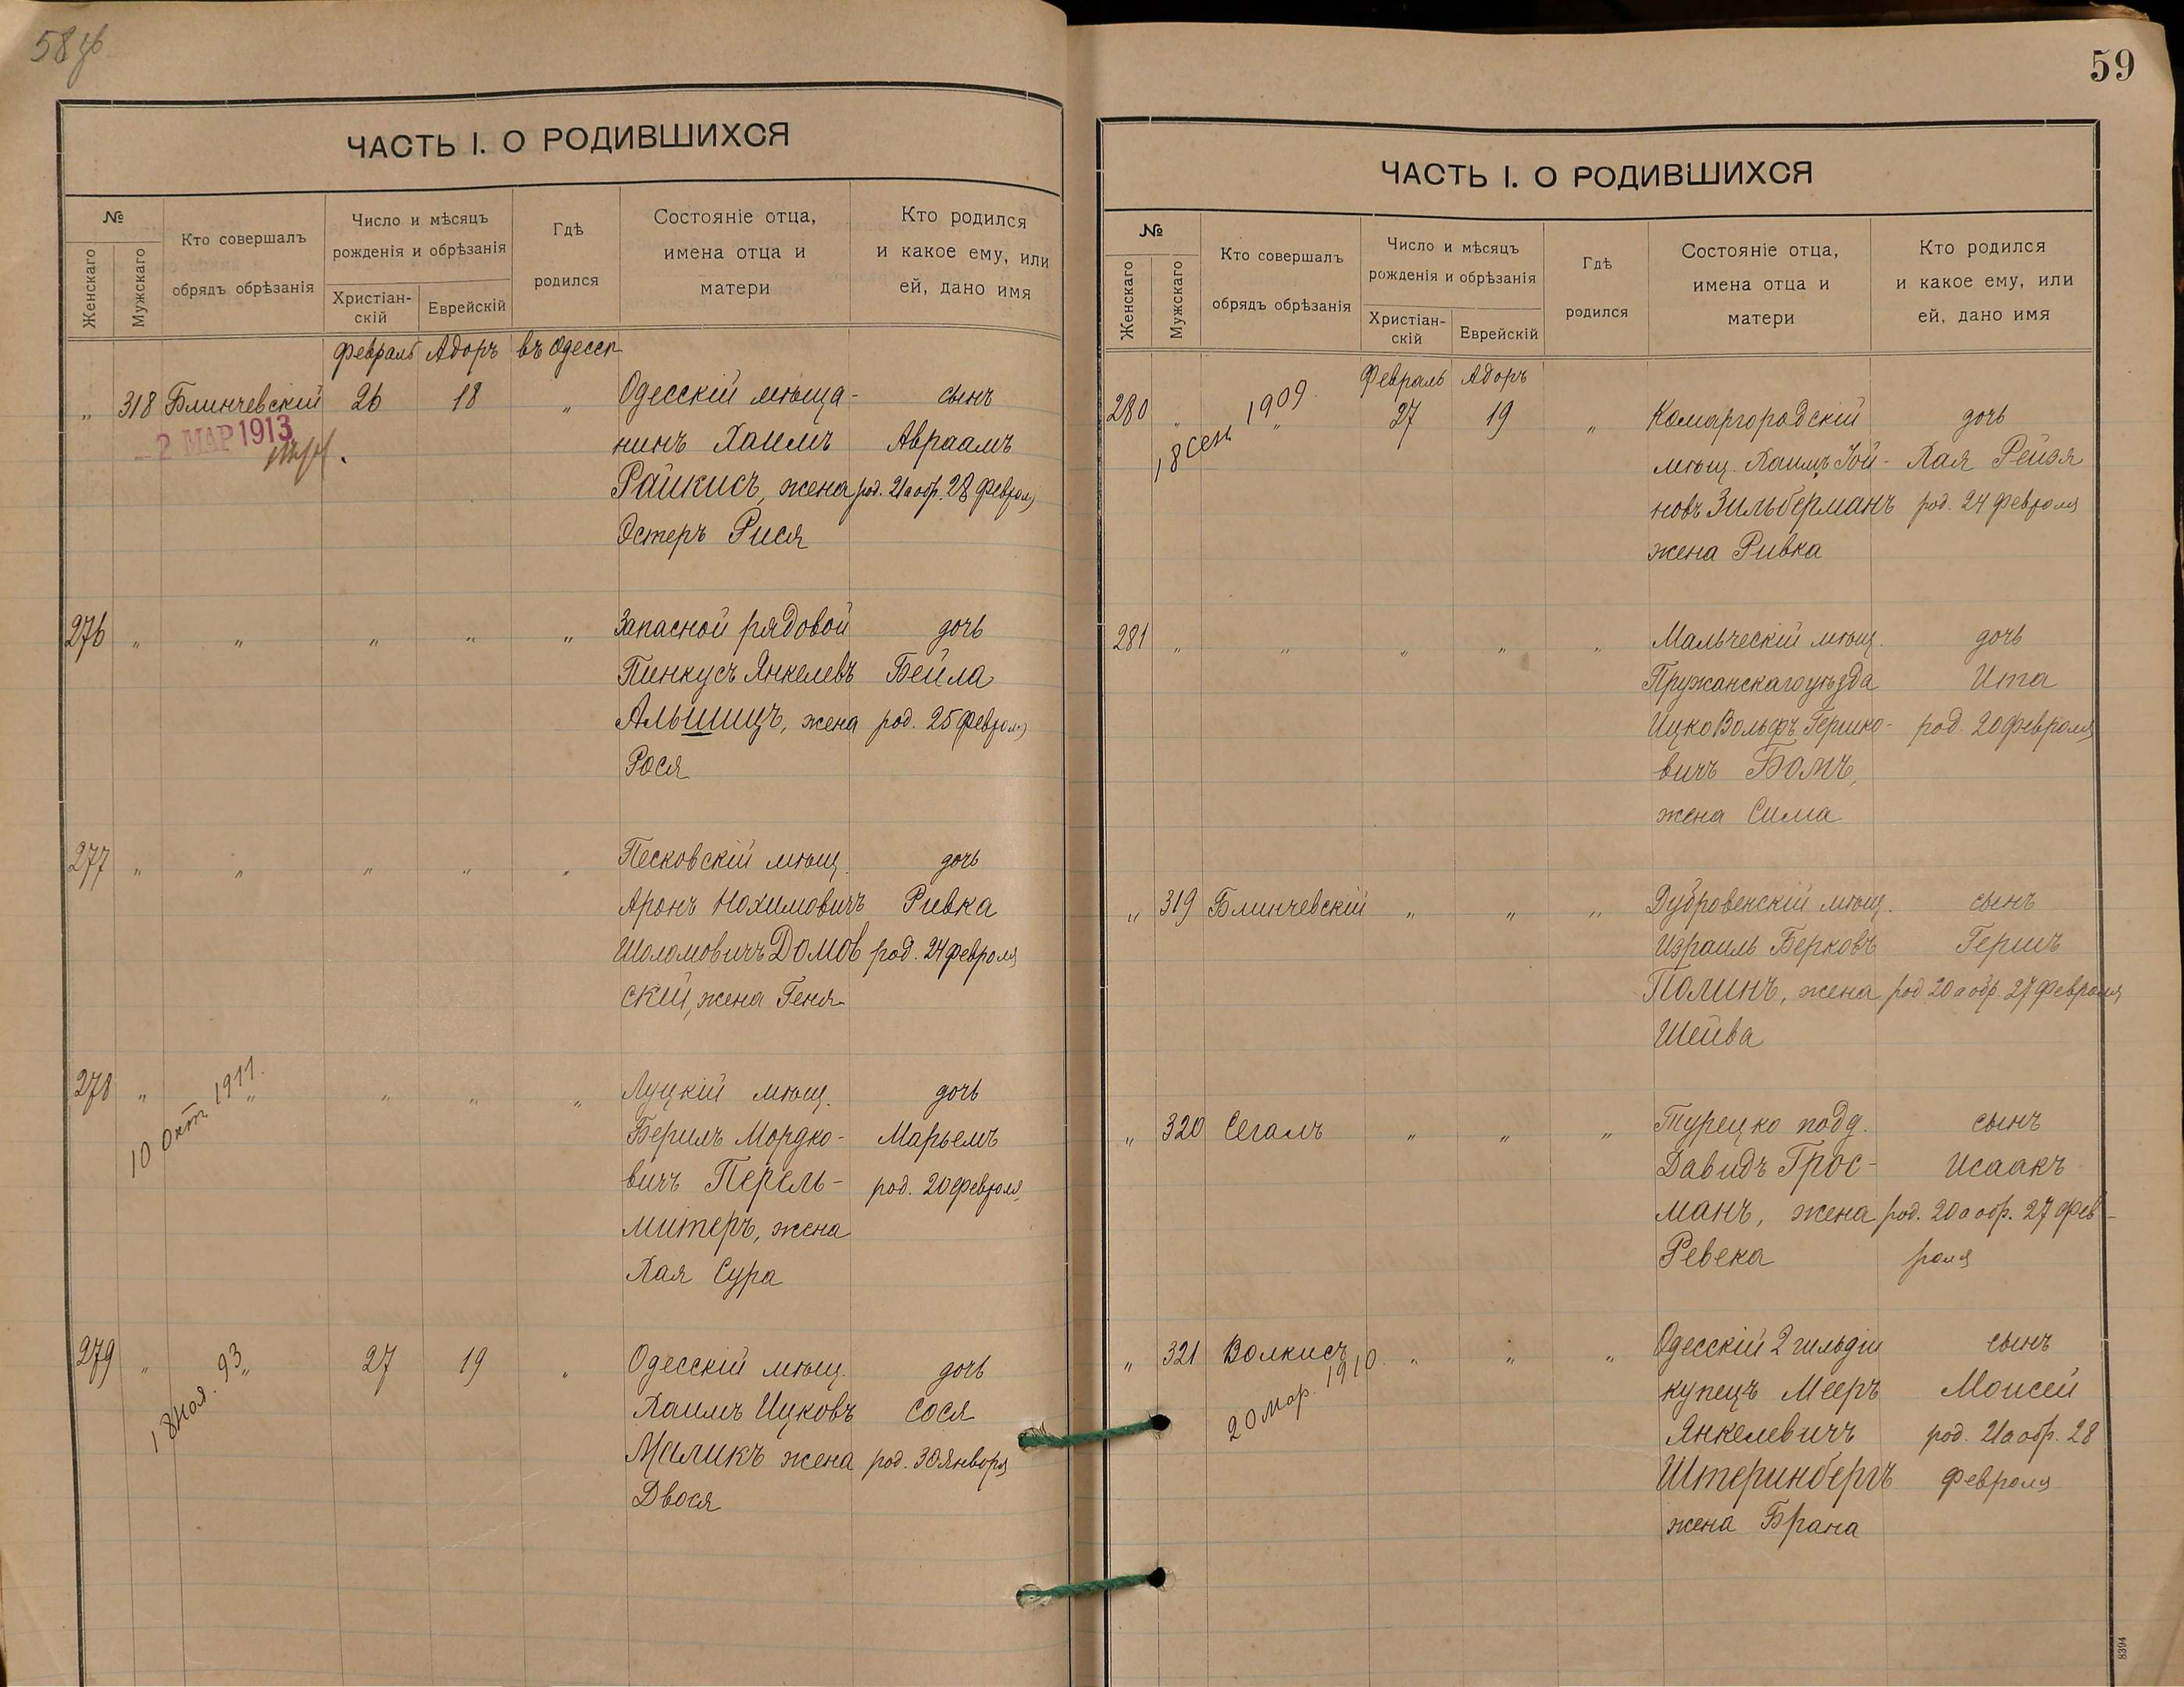 58
ЧАСТЬ I. О РОДИВШИХСЯ
№
Женскаго
Мужскаго
Кто совершалъ
обрядъ обрѣзанія
Число и мѣсяцъ
рожденія и обрѣзанія
Христіан-
скій
Еврейскій
Гдѣ
родился
Состояніе отца,
имена отца и
матери
Кто родился
и какое ему, или
ей, дано имя
Февраль Адоръ въ Одессѣ
„ 318 Блинчевскій 26 18 „ Одесскій мѣща- сынъ
2 МАР 1913
нинъ Хаимъ Авраамъ
Райкисъ, жена род. 21 а обр. 28 февраля
Эстеръ Рися
276 „ „ „ „ „ Запасной рядовой дочь
Пинкусъ Янкелевъ Бейла
Альшицъ, жена род. 25 февраля
Рося
277 „ „ „ „ „ Песковскій мѣщ. дочь
Аронъ Нохимовичъ Ривка
Шоломовичъ Домов род. 24 февраля
скій, жена Геня
278 „ „ „ „ „ Луцкій мѣщ. дочь
10 Окт. 1911.
Берилъ Мордко- Марьемъ
вичъ Перель- род. 20 февраля
митеръ, жена
Хая Сура
279 „ „ 27 19 „ Одесскій мѣщ. дочь
18 Ноя. 93
Хаимъ Ицковъ Сося
Маликъ жена род. 30 Января
Двося
59
ЧАСТЬ I. О РОДИВШИХСЯ
№
Женскаго
Мужскаго
Кто совершалъ
обрядъ обрѣзанія
Число и мѣсяцъ
рожденія и обрѣзанія
Христіан-
скій
Еврейскій
Гдѣ
родился
Состояніе отца,
имена отца и
матери
Кто родился
и какое ему, или
ей, дано имя
Февраль Адоръ
280 „ „ 27 19 „ Комаргородскій дочь
18 Сен. 1909.
мѣщ. Хаимъ Іой- Хая Рейзя
новъ Зильберманъ род. 24 февраля
жена Ривка
281 „ „ „ „ „ Мальческій мѣщ. дочь
Пружанскаго уѣзда Ита
Ицко Вольфъ Гершко- род. 20 февраля
вичъ Бомъ,
жена Сима
„ 319 Блинчевскій „ „ „ Дубровенскій мѣщ. сынъ
Израиль Берковъ Гершъ
Полинъ, жена род. 20 а обр. 27 февраля
Шейва
„ 320 Сегалъ „ „ „ Турецко подд. сынъ
Давидъ Грос- Исаакъ
манъ, жена род. 20 а обр. 27 фев-
Ревека раля
„ 321 Волкисъ „ „ „ Одесскій 2 гильдіи сынъ
20 мар. 1910.
купецъ Мееръ Моисей
Янкелевичъ род. 21 а обр. 28
Штеринбергъ февраля
жена Брана
8394